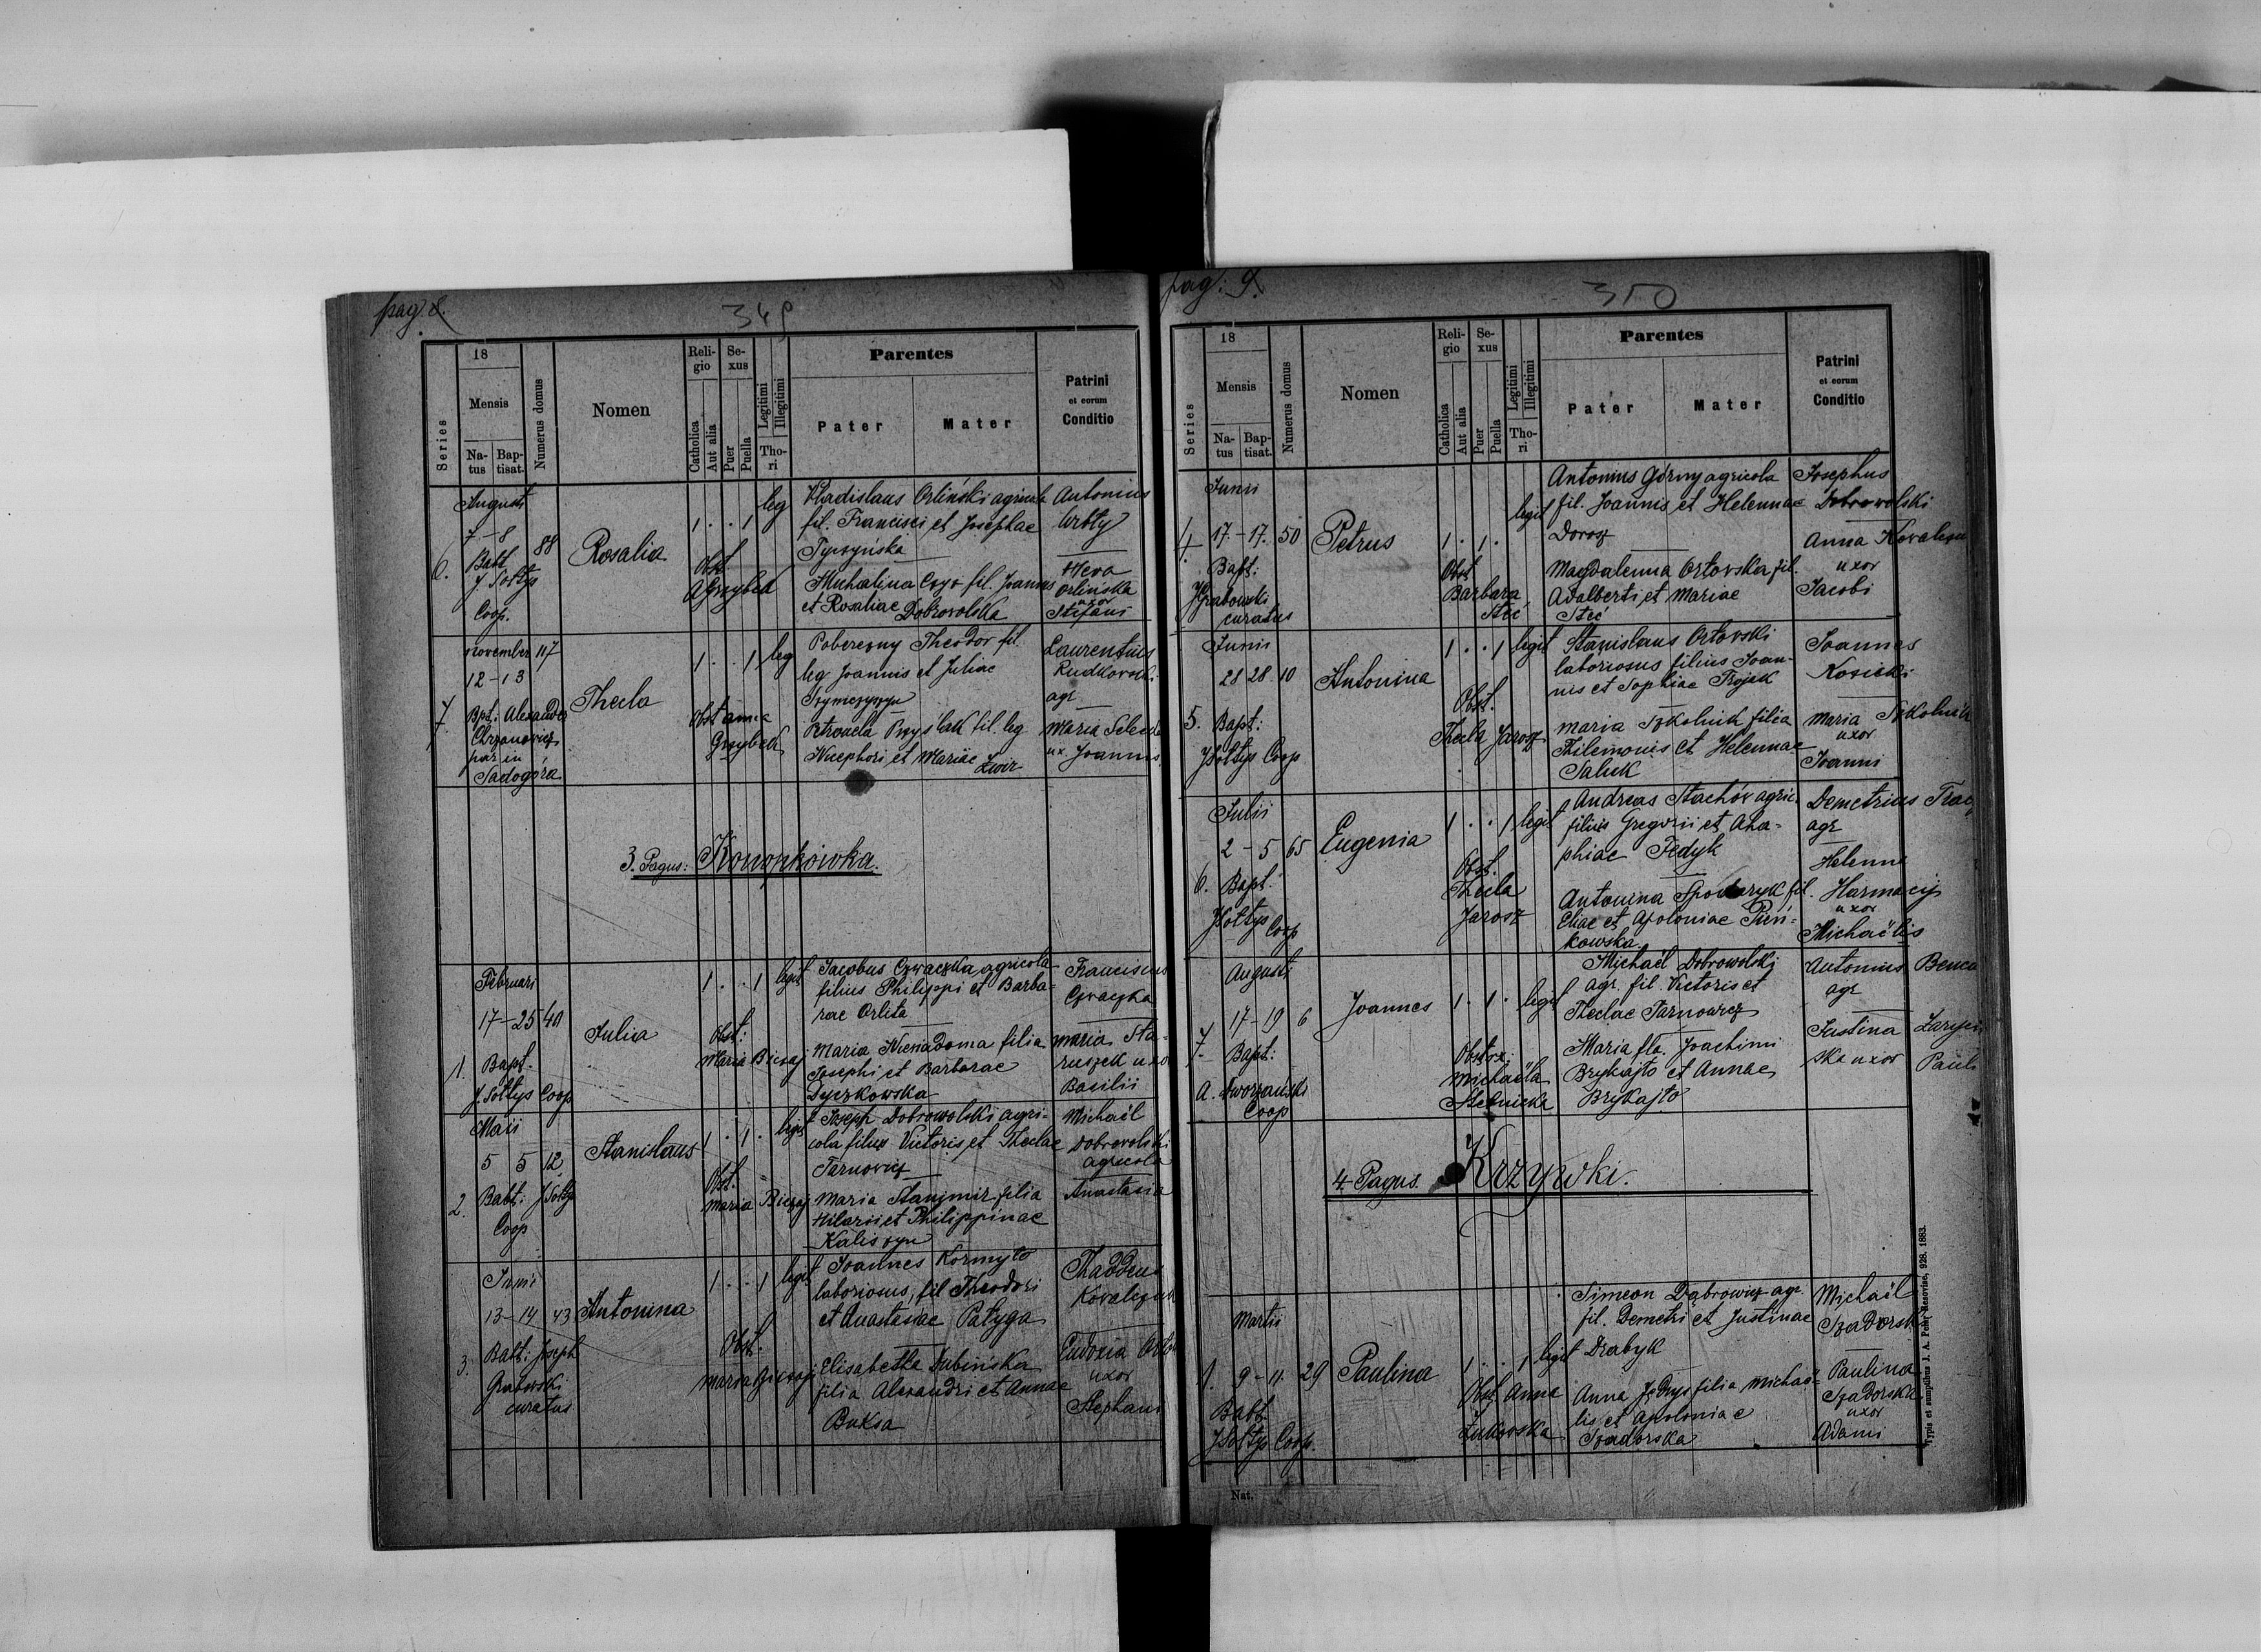 pag. 8.
349
18
Mensis
Na-
tus
Bap-
tisat.
Series
Numerus domus
Nomen
Reli-
gio
Catholica
Aut alia
Se-
xus
Puer
Puella
Legitimi
Illegitimi
Tho-
ri
Parentes
Pater
Mater
Patrini
et eorum
Conditio
6.
Augusti
7-8
88
Babt
J. Sołtys
Coop.
Rosalia
1 . . 1 leg
Obst
A Grzybek
Vladislaus Orliński agricola
fil. Francisci et Josephae
Tyrzyńska
Michalina Czyz fil. Joannis
et Rosaliae Dobrowolska
Antonius
Urbty
Heva
Orlińska
uxor
Stefani
7
november 117
12-13
Bpt: Alexander
Chrzanowicz
par in
Sadogóra
Thecla
1 . . 1 leg
Obst anna
Grzybek
Poberezny Theodor fil.
leg Joannis et Juliae
Petronela Przyślak fil. leg
Nicephori et Mariae Zwir
Laurentius
Rudkowski
agr
Maria
ux. Joannis
3. Pagus: Konopkówka.
1.
Februari
17-25 40
Bapt.
J. Sołtys Coop
Julia
1 . . 1 legit
Obst:
Maria Biezaj
Jacobus Czwaczka, agricola
filius Philippi et Barba-
rae Orlita
Maria Niewiadoma filia
Josephi et Barbarae
Dyczkowska
Franciscus
Czwaczka
maria Sta-
ruszek uxor
Basilii
2.
Maii
5 5 12
Babt: J Sołtys
Coop
Stanislaus
1 . 1 . legit
Obst.
maria Biezaj
Joseph Dobrowolski agri-
cola filius Victoris et Theclae
Tarnowicz
Maria Stanimir filia
Hilarii et Philippinae
Kaliszyn
Michaël
Dobrowolski
agricola
Anastasia
3.
Junii
13-14 43
Babt: Joseph
Grabowski
curatus
Antonina
1 . . 1 legit
Obst.
maria Biezaj
Joannes Kormyło
laboriosus, fil Theodori
et Anastasiae Patyga
Elisabetha Dubińska
filia Alexandri et Annae
Buksa
Thaddeus
Kovalczuk
Eudoxia
uxor
Stephani
pag: 9.
350
18
Mensis
Na-
tus
Bap-
tisat.
Series
Numerus domus
Nomen
Reli-
gio
Catholica
Aut alia
Se-
xus
Puer
Puella
Legitimi
Illegitimi
Tho-
ri
Parentes
Pater
Mater
Patrini
et eorum
Conditio
4.
Junii
17.-17. 50
Bapt:
J Grabowski
curatus
Petrus
1 . 1 . legit
Obst
Barbara
Steć
Antonius Górny agricola
fil. Joannis et Helennae
Dorosz
Magdalenna Orłowska fil.
Adalberti et Mariae
Steć
Josephus
Dobrowolski
Anna
uxor
Jacobi
5.
Junii
28 28 10
Bapt:
J Sołtys Coop
Antonina
1 . . 1 legit
Obst.
Thecla Jarosz
Stanislaus Orłowski
laboriosus filius Joan-
nis et Sophiae Trojak
maria Szkolnik filia
Filemonis et Helennae
Saluk
Joannes
Kosicki
Maria Szkolnik
uxor
Joanni
6.
Julii
2-5 65
Bapt.
J Sołtys
Coop
Eugenia
1 . . 1 legit
Obst.
Thecla
Jarosz
Andreas Stachów agric.
filius Gregorii et Aha-
phiae Fedyk
Antonina fil.
Eliae et Apoloniae Pien-
kowska
Demetrius
agr
Helenna
Harmacij
uxor
Michaëlis
7.
Augusti
17-19 6
Bapt:
A. Dworzański
Coop
Joannes
1 . 1 . legit
Obstrx:
Michaëla
Stelnicka
Michaël Dobrowolski
agr. fil. Victoris et
Theclae Tarnowicz
Maria fla. Joachimi
Brykajło et Annae
Brykajło
Antonius
agr
Justina
ska uxor Pauli
4. Pagus. Krzywki.
1.
Martii
9-11. 29
Babt
J Sołtys Coop.
Paulina
1 . . 1 legit
Obst Anna
Żukowska
Simeon Dąbrowicz agr.
fil. Demetri et Justinae
Drabyk
Anna Jędrys filia Michaë-
lis et Apoloniae
Szadorska
Michaël
Szadorski
Paulina
Szadorska
uxor
Adami
Nat.
Typis et sumptibus J. A. Pelar Resoviae, 928. 1883.